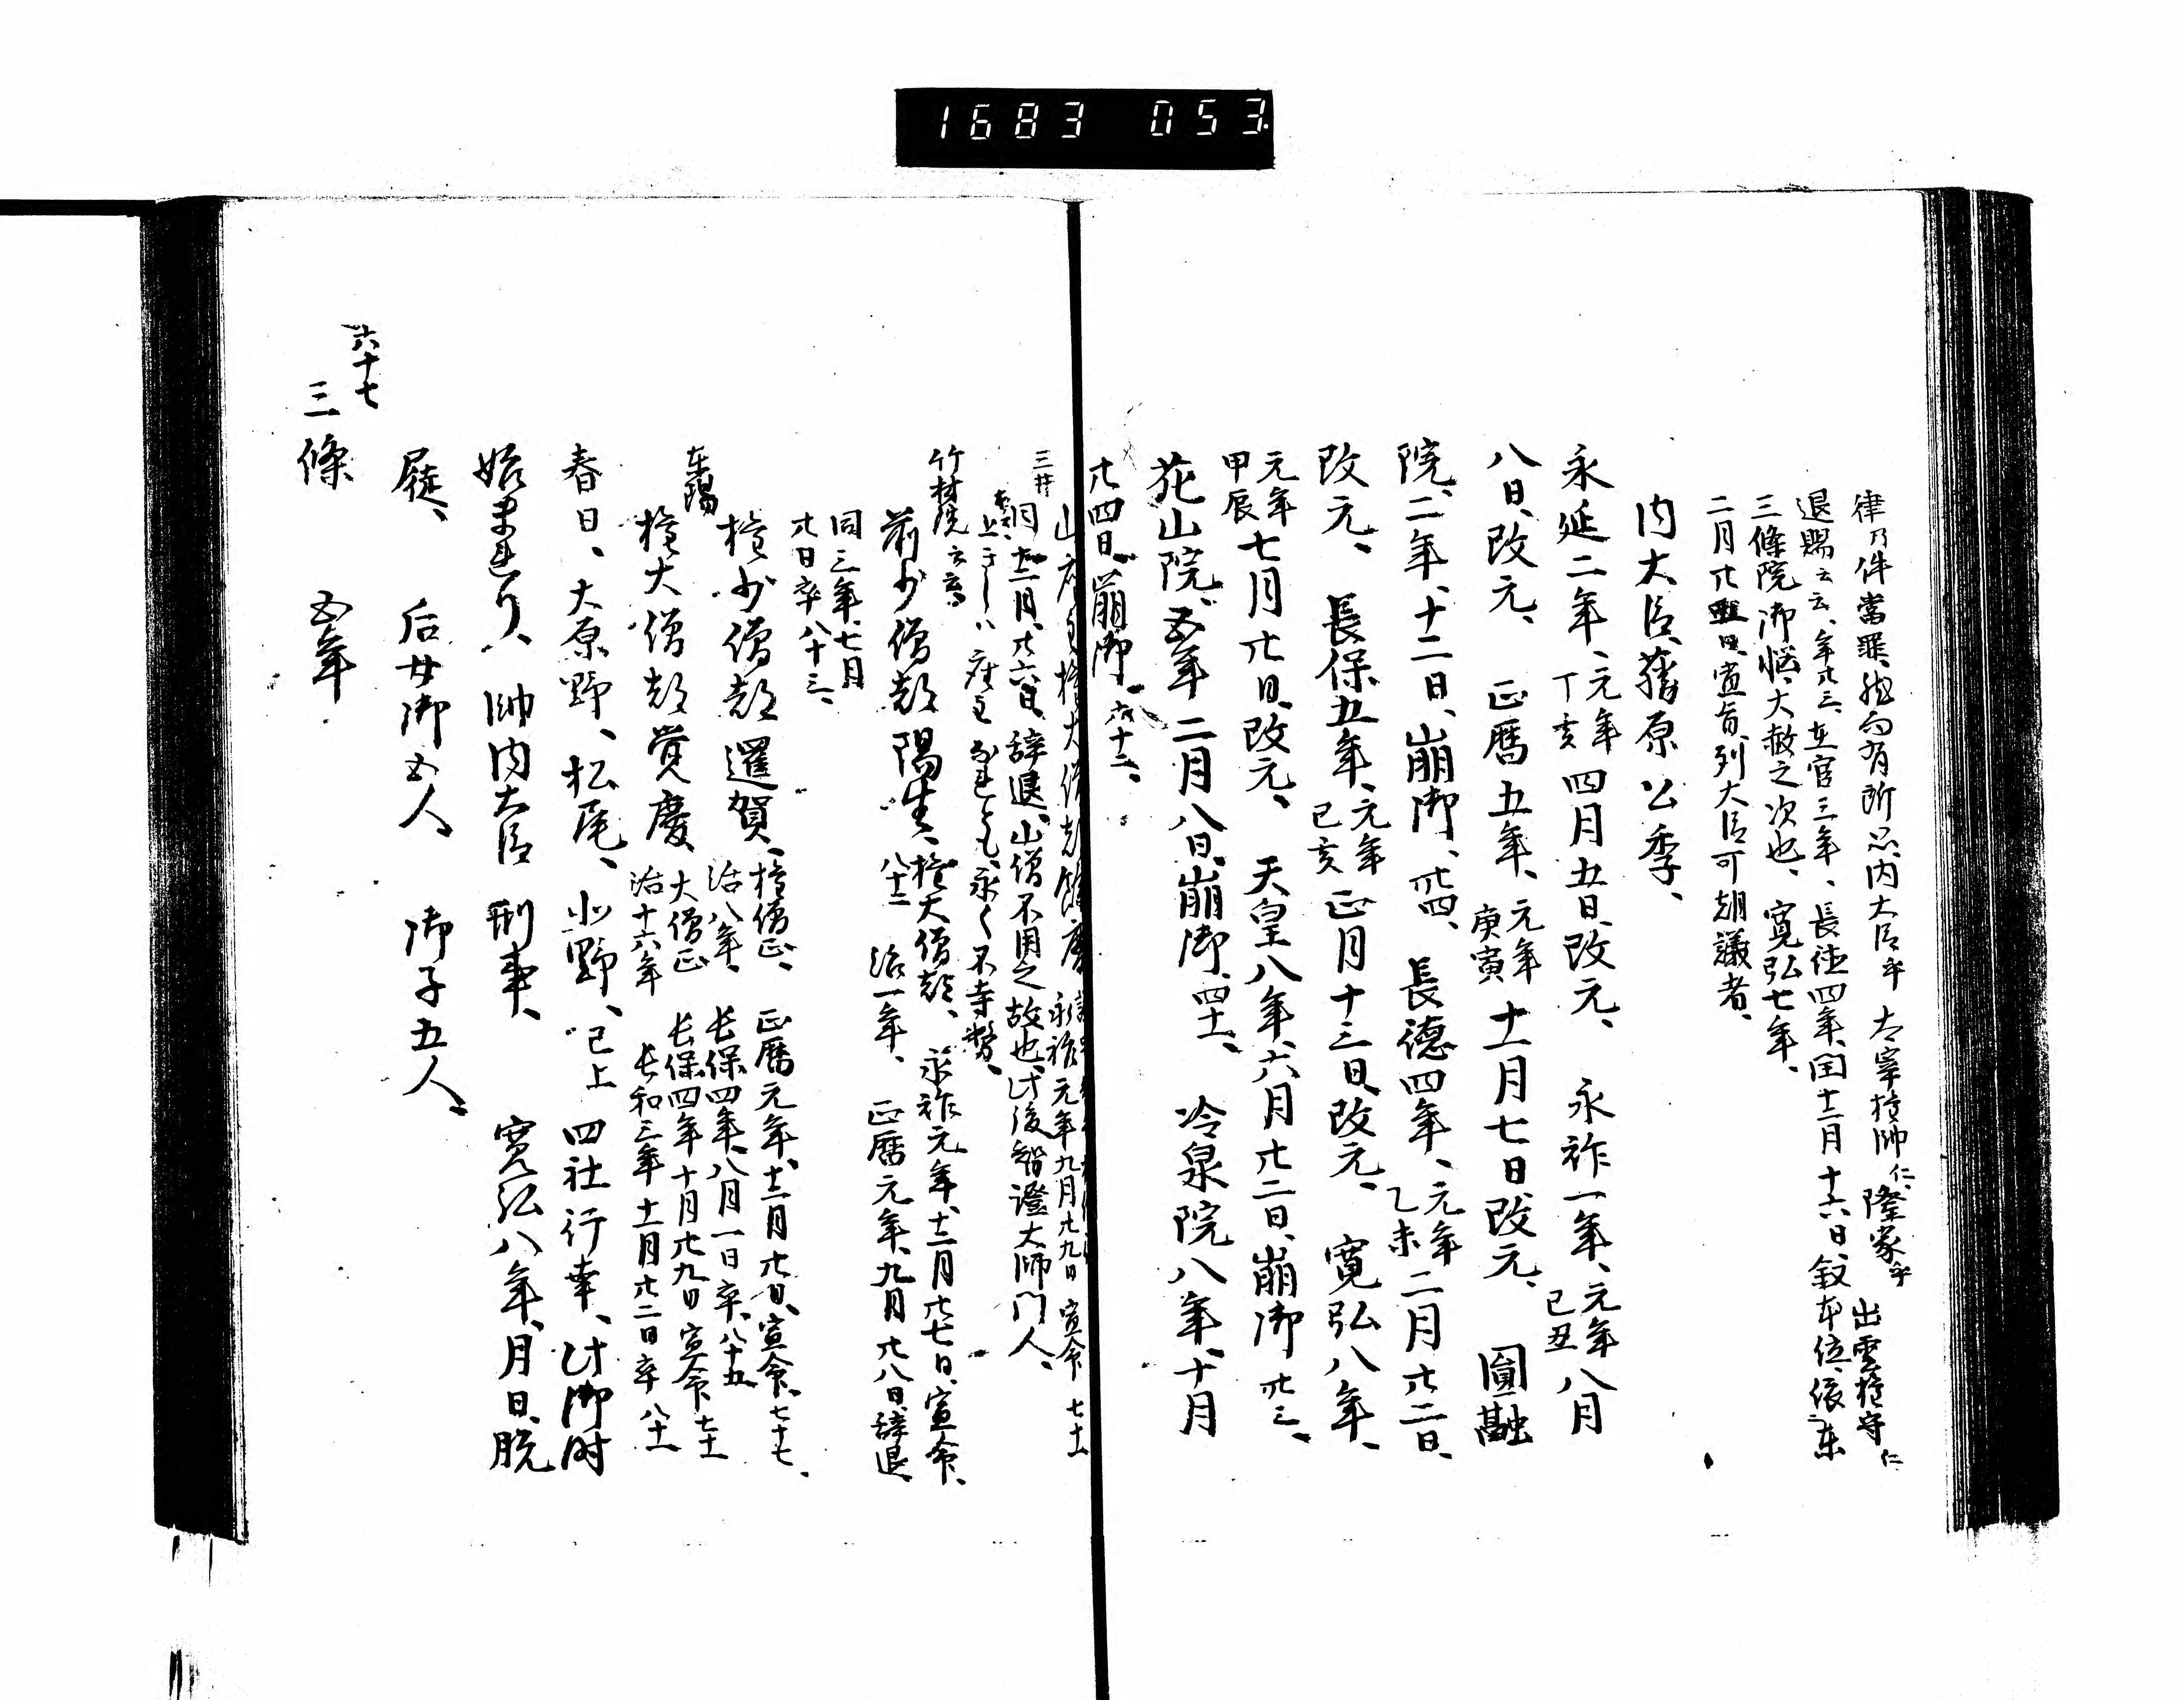 1683 053
律乃件當罪、
内大臣乎 太宰権帥仁 隆家乎 出雲権守仁
退賜云云、年廿三、在官三年、長徳四年、閏十二月十六日、叙本位、依東
三條院御悩、大赦之次也、寛弘七年、
二月廿日、宣旨、列大臣可朝議者、
内大臣、藤原公季、
永延二年、元年丁亥四月五日、改元、 永祚一年、元年己丑八月
八日、改元、 正暦五年、元年庚寅十一月七日、改元、 圓融
院、二年、十二日、崩御、 長德四年、元年乙未二月廿二日、
改元、 長保五年、元年己亥正月十三日、改元、 寛弘八年、
元年甲辰七月廿日、改元、 天皇八年、六月廿二日、崩御
花山院、五年二月八日、崩御、四十一、 冷泉院八年、十月
廿四日、崩御、六十二、
三井
永祚元年九月廿九日 宣命 七十一
同十二月、廿六日、辞退、山僧不用之故也、此後智證大師門人、
座主なれとも、永く不寺務、
竹林院
前少僧都陽生、権大僧都、 永祚元年、十二月廿七日、宣命、
八十二 治一年、 正暦元年、九月廿八日、辞退、
同三年、七月
廿日卒八十三、
権少僧都暹賀、権僧正、 正暦元年、十二月廿日、宣命、七十七、
治八年、 長保四年、八月一日卒、八十五
東陽
権大僧都覚慶 大僧正 長保四年十月廿九日宣命七十一
治十六年 長和三年十一月廿二日卒八十一
春日、大原野、松尾、北野、已上四社行幸、此御時
始まれり、帥内大臣刑事、 寛弘八年、月日、脱
屣、 后女御五人 御子五人、
六十七
三條 五年